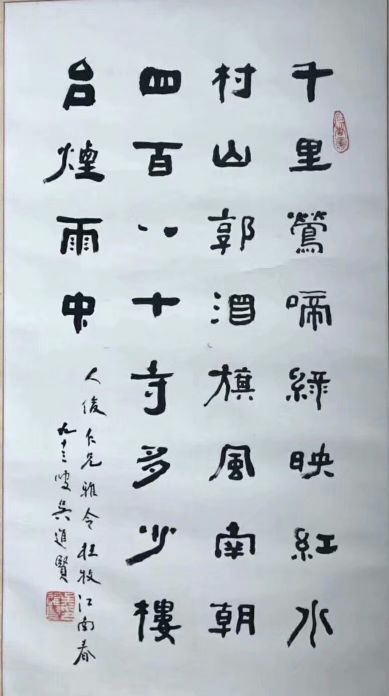 千里鶯啼綠映紅水
村山郭酒旗風南朝
四百八十寺多少樓
台煙雨中
人俊仁兄雅令杜牧江南春
九十三叟吳進賢